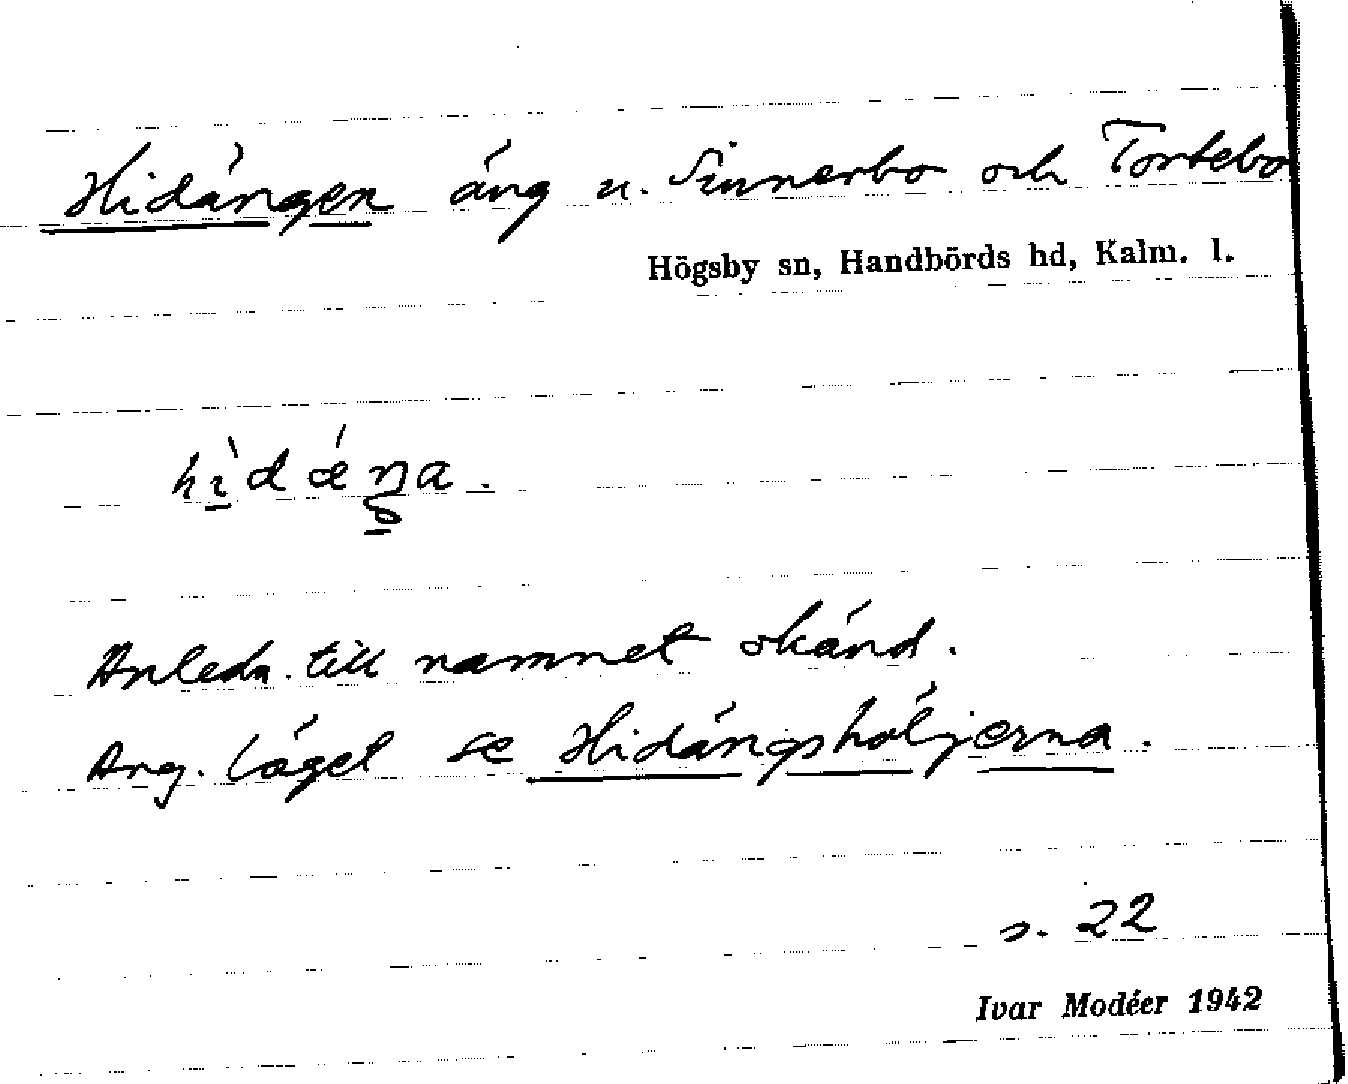 Hidängen äng u. Sinnerbo och Tortebo
Högsby sn, Handbörds hd, Kalm. l.
Anledn. till namnet okänd.
Ang. läget se Hidängshöljerna.
s. 22
Ivar Modéer 1942